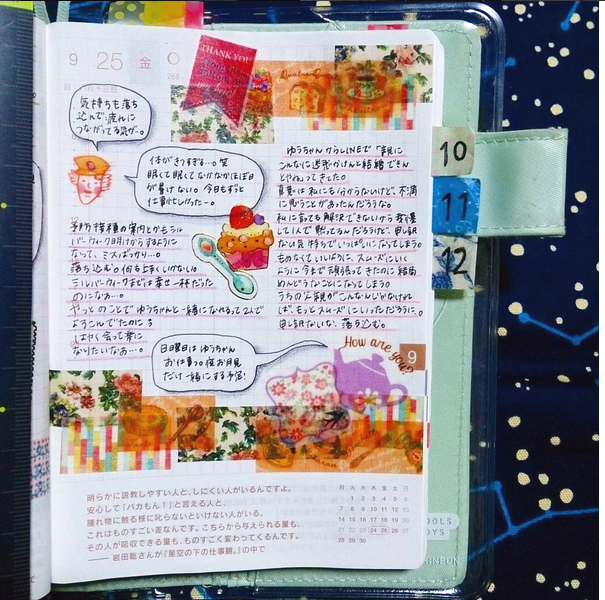 9 25 金
268
THANK YOU
気持ちも落ち
込んで疲れに
つながってる気が…。
体がきつすぎる…。笑
眠くて眠くてなかなかほぼ日
が書けない。今日もずっと
仕事だし…。
予防接種の案内とかも
シルバーウィーク明けからするように
なって、ミスばっかり…。
落ち込む。何も上手くいかない。
シルバーウィークまでは幸せ一杯だった
のになぁ…。
やっとのことでゆうちゃんと一緒になれるって2人で
よろこんでたのに
はやく会って楽に
なりたいなぁ…。
日曜日はゆうちゃん
お仕事。夜お月見
だけ一緒にする予定!
ゆうちゃんからLINEで「親に
こんなに迷惑かけんと結婚できん
とやねってきた。
真意は私にも分からないけど、不満
に思うことがあったんだろうな。
私に言っても解決できないから
して1人で黙ってるんだろうけど、申し訳
ない気持ちでいっぱいになってしまう。
ものすごくいいように、スムーズにいく
ように今まで頑張ってきたのに結局
めんどうなことになってしまう。
うちの父親がこんなんじゃなけれ
ば、もっとスムーズにいっただろうに。
申し訳ないな。落ち込む。
How are you?
9
10
11
12
明らかに説教しやすい人と、しにくい人がいるんですよ。
安心して「バカもん!」と言える人と、
腫れ物に触る様に叱らないといけない人がいる。
これはものすごい差なんです。こちらから与えられる量も、
その人が吸収できる量も、ものすごく変わってくるんです。
—— 岩田聡さんが『星空の下の仕事観。』の中で
月 火 水 木 金 土 日
1 2 3 4 5 6
7 8 9 10 11 12 13
14 15 16 17 18 19 20
21 22 23 24 25 26 27
28 29 30